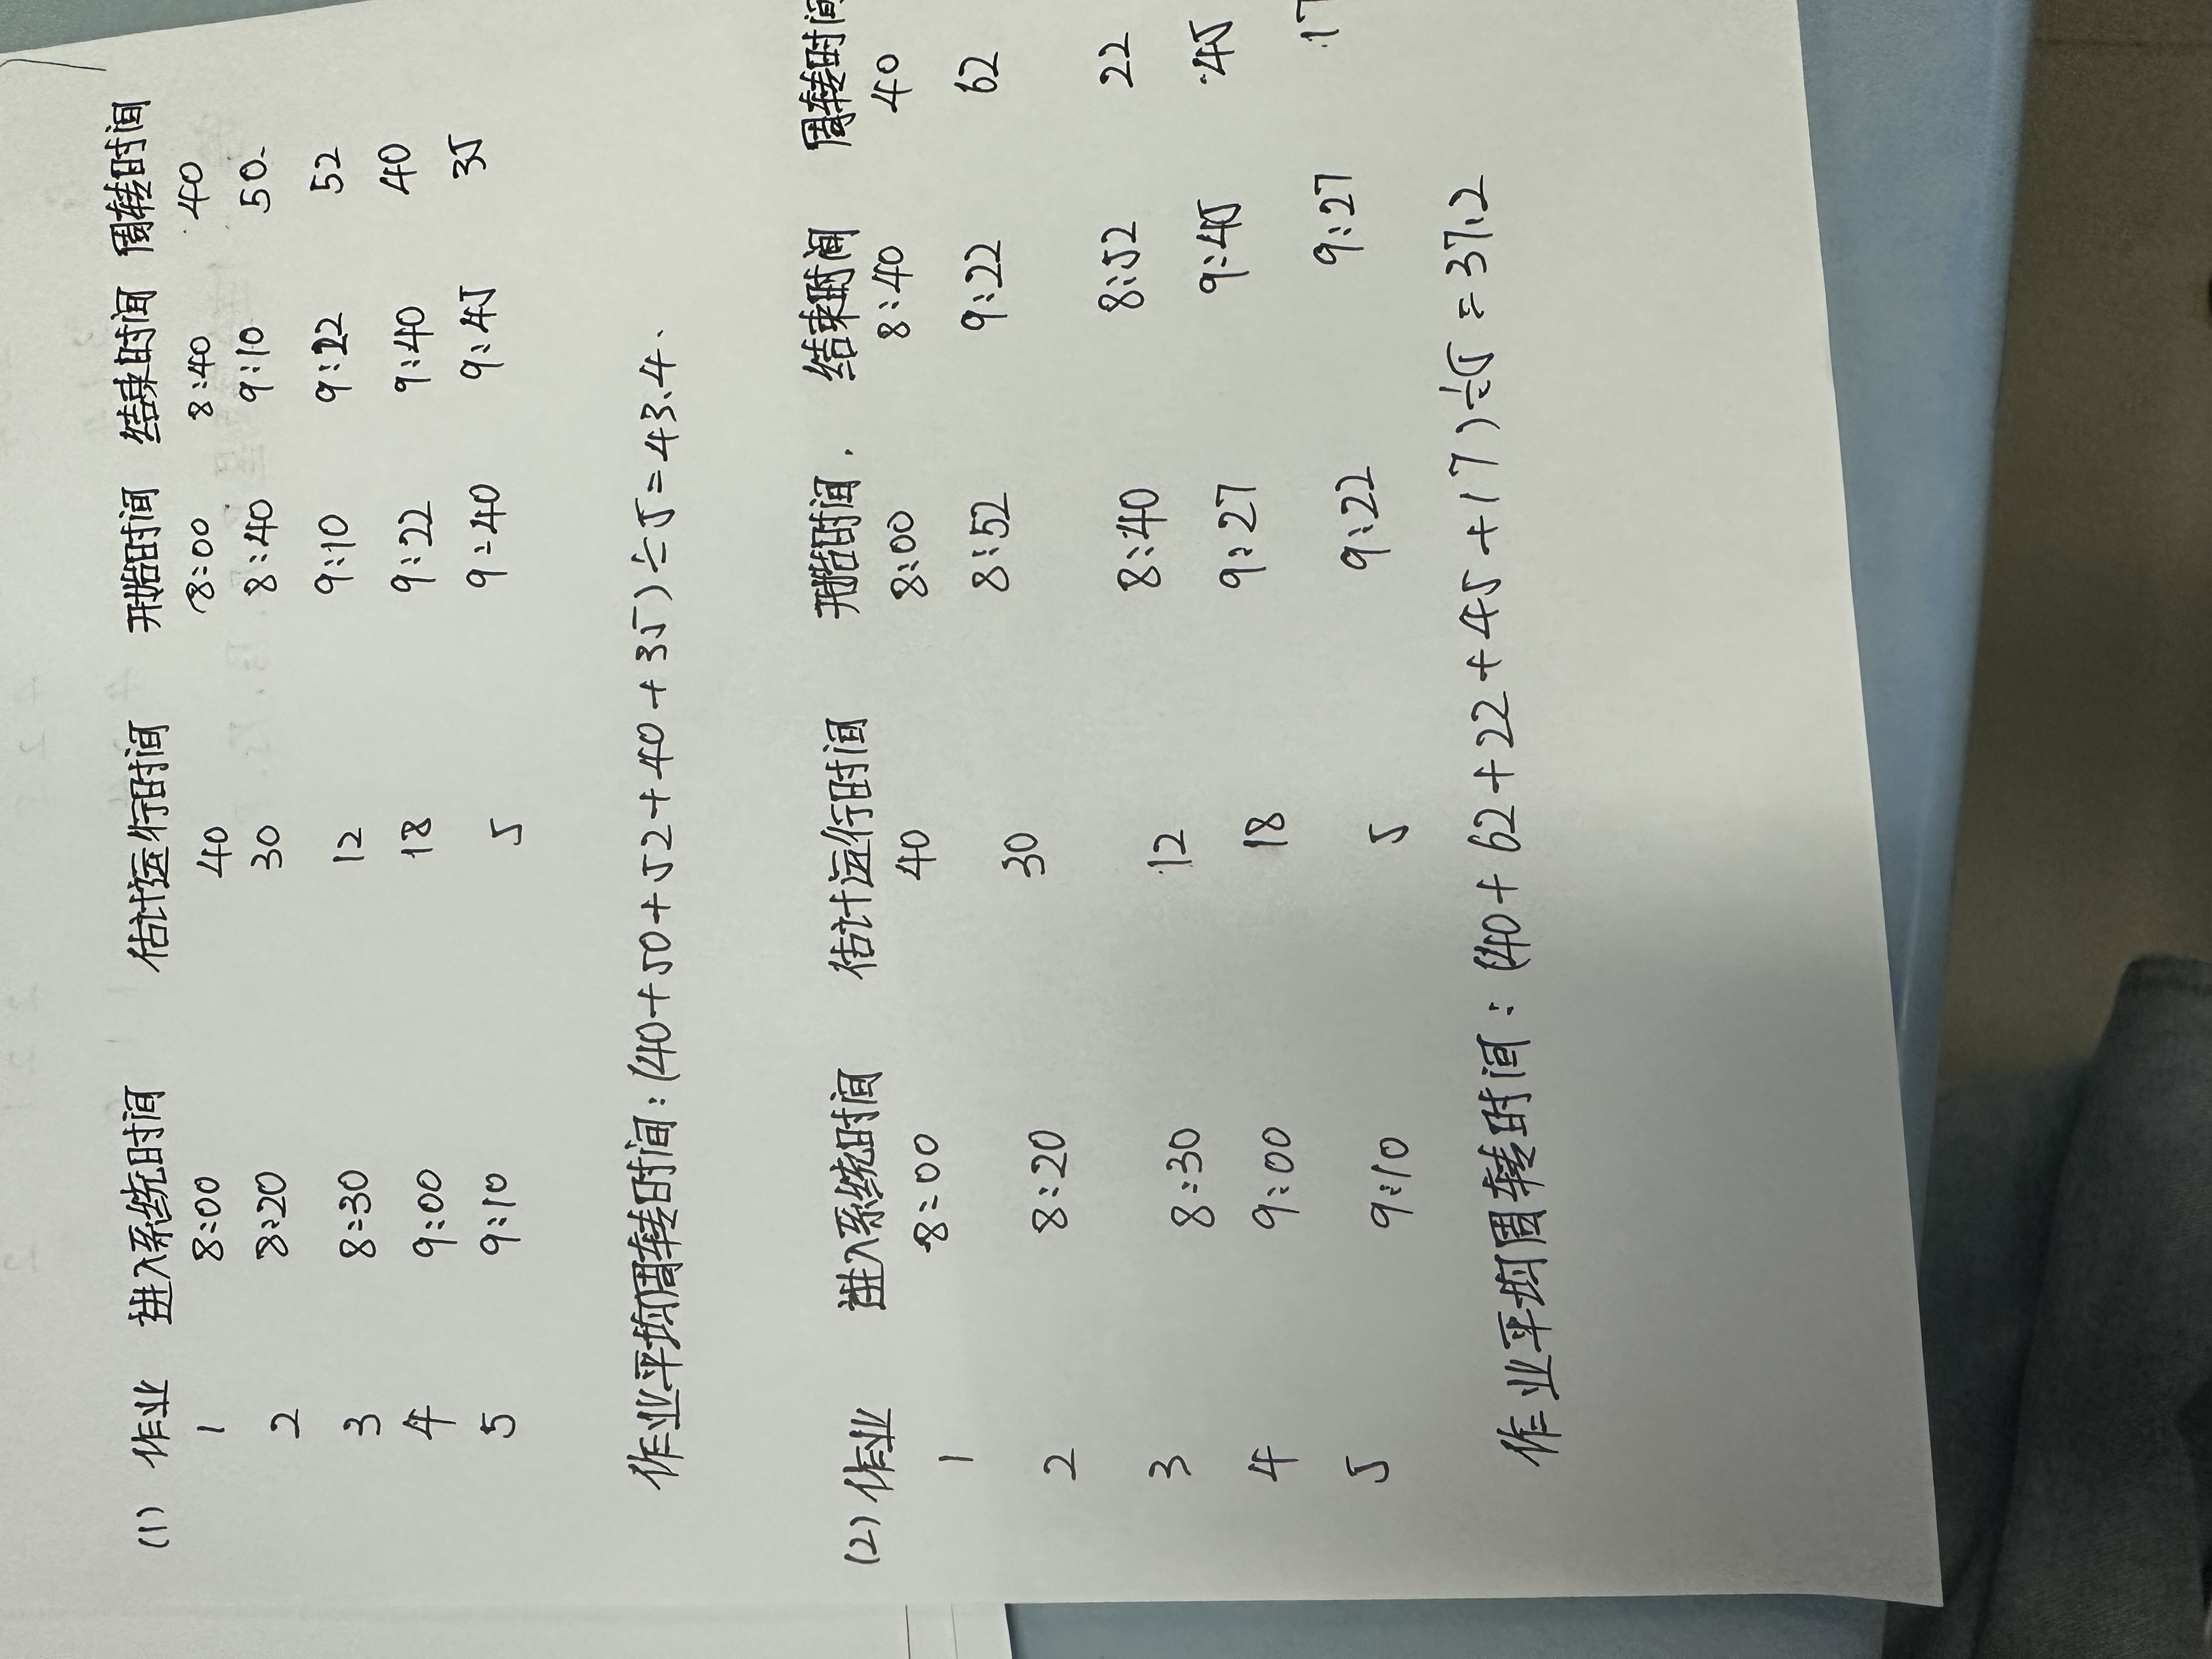 (1) 作业 进入系统时间 估计运行时间 开始时间 结束时间 周转时间
1 8:00 40 8:00 8:40 40
2 8:20 30 8:40 9:10 50
3 8:30 12 9:10 9:22 52
4 9:00 18 9:22 9:40 40
5 9:10 5 9:40 9:45 35
作业平均周转时间:(40+50+52+40+35)÷5=43.4.
(2) 作业 进入系统时间 估计运行时间 开始时间. 结束时间 周转时间
1 8:00 40 8:00 8:40 40
2 8:20 30 8:52 9:22 62
3 8:30 12 8:40 8:52 22
4 9:00 18 9:27 9:45 45
5 9:10 5 9:22 9:27 17
作业平均周转时间:(40+62+22+45+17)÷5=37.2